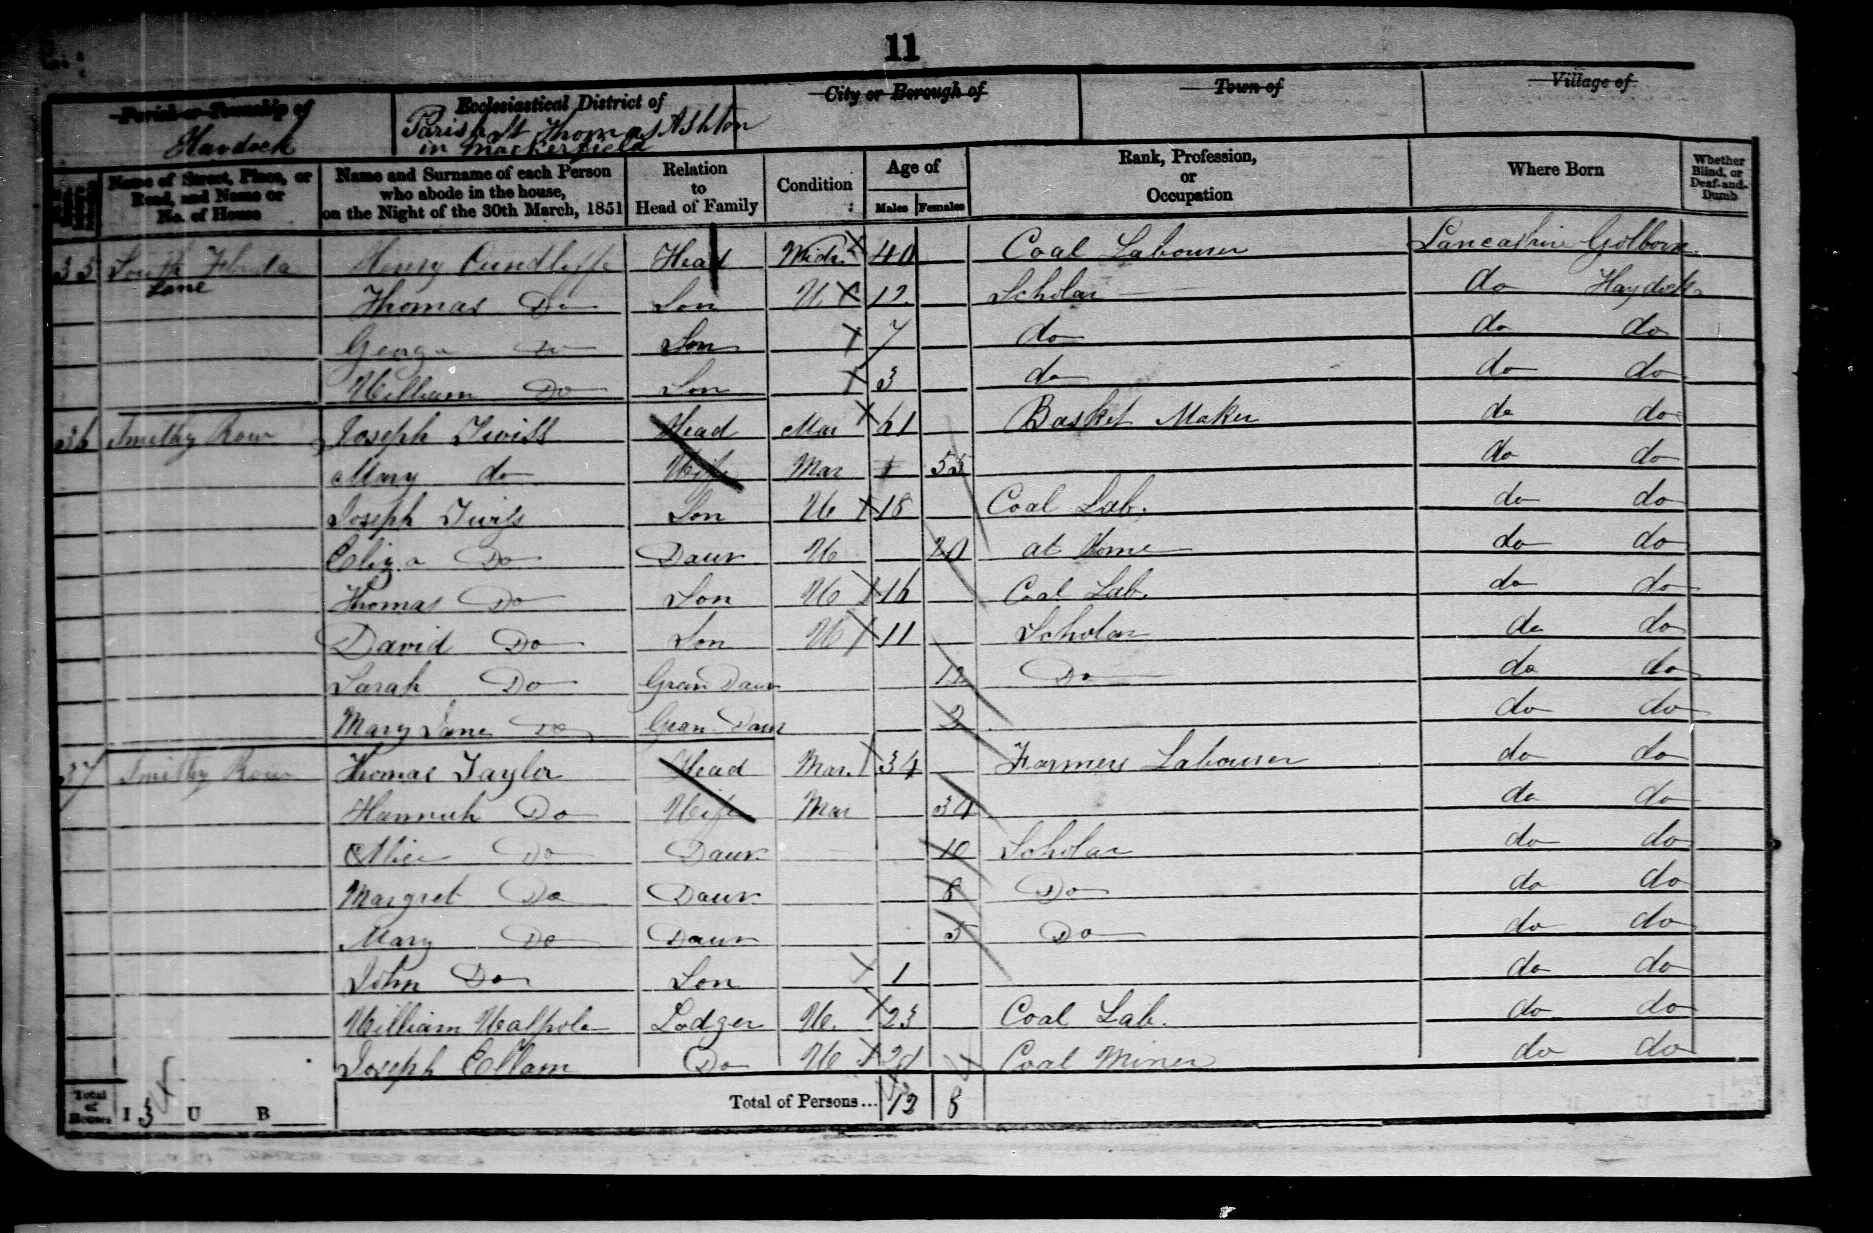 11
Parish or Township of Ecclesiastical District of City or Borough of Town of Village of
Haydock Parish St Thomas Ashton
in Mackerfield
Name of Street, Place, or Road, and Name or No. of House Name and Surname of each Person who abode in the house, on the Night of the 30th March, 1851 Relation to Head of Family Condition Age of Males Females Rank, Profession, or Occupation Where Born Whether Blind, or Deaf-and-Dumb
35 South Florida Lane Henry Cundliffe Head Widr. 40 Coal Labourer Lancashire Golborn
Thomas Do Son U 12 Scholar do Haydock
George Do Son 7 do do do
William Do Son 3 do do do
36 Smithy Row Joseph Twiss Head Mar 61 Basket Maker do do
Mary do Wife Mar 55 do do
Joseph Twiss Son U 18 Coal Lab. do do
Eliza Do Daur U 20 at Home do do
Thomas Do Son U 16 Coal Lab. do do
David Do Son U 11 Scholar do do
Sarah Do Gran Daur 12 Do do do
Mary Jane Do Gran Daur 2 do do
37 Smithy Row Thomas Tayler Head Mar. 34 Farmers Labourer do do
Hannah Do Wife Mar 30 do do
Alice Do Daur 10 Scholar do do
Margret Do Daur 8 Do do do
Mary Do Daur 5 Do do do
John Do Son 1 do do
William Walpole Lodger U. 23 Coal Lab. do do
Joseph Ellam Do U 20 Coal Miner do do
Total of Houses I 3 U B Total of Persons... 12 8